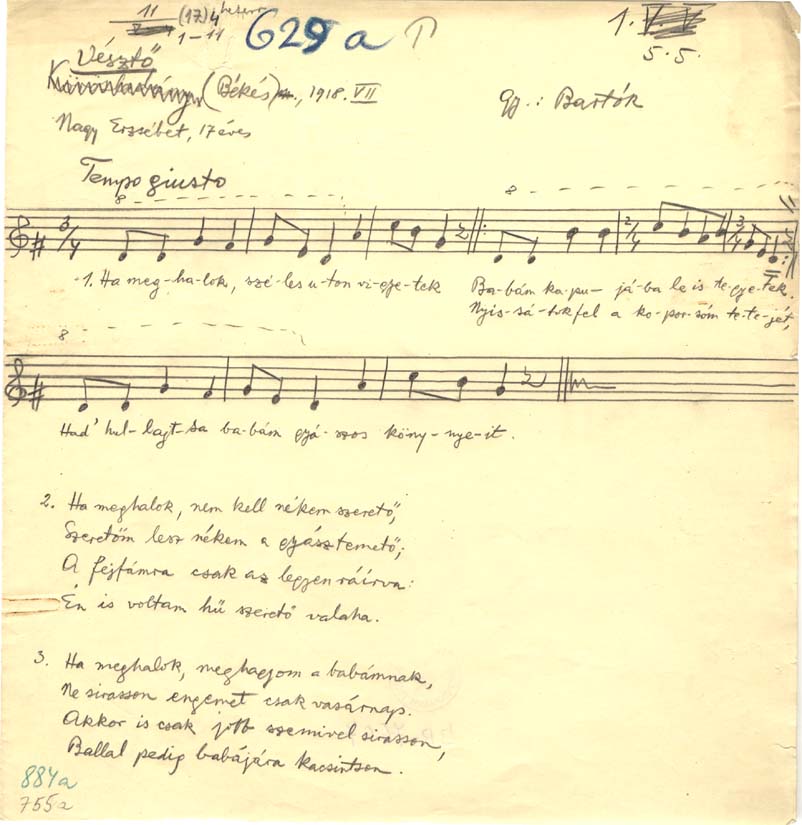 11 (17) 4
1–11
629 a
1. V. V
5. 5.
Vésztő
(Békés) m., 1918. VII
gy.: Bartók
Nagy Erzsébet, 17 éves
Tempo giusto
8
8
3/4 2/4 3/4
1. Ha meg-ha-lok, szé-les u-ton vi-gye-tek Ba-bám ka-pu-já-ba le is te-gye-tek.
Nyis-sá-tok fel a ko-por-sóm te-te-jét,
8
Had' hul-lajt-sa ba-bám gyá-szos köny-nye-it.
2. Ha meghalok, nem kell nékem szerető,
Szeretőm lesz nékem a gyásztemető;
A fejfámra csak az legyen ráírva:
Én is voltam hű szerető valaha.
3. Ha meghalok, meghagyom a babámnak,
Ne sirasson engemet csak vasárnap.
Akkor is csak jobb szemivel sirasson,
Ballal pedig babájára kacsintson.
884a
755a